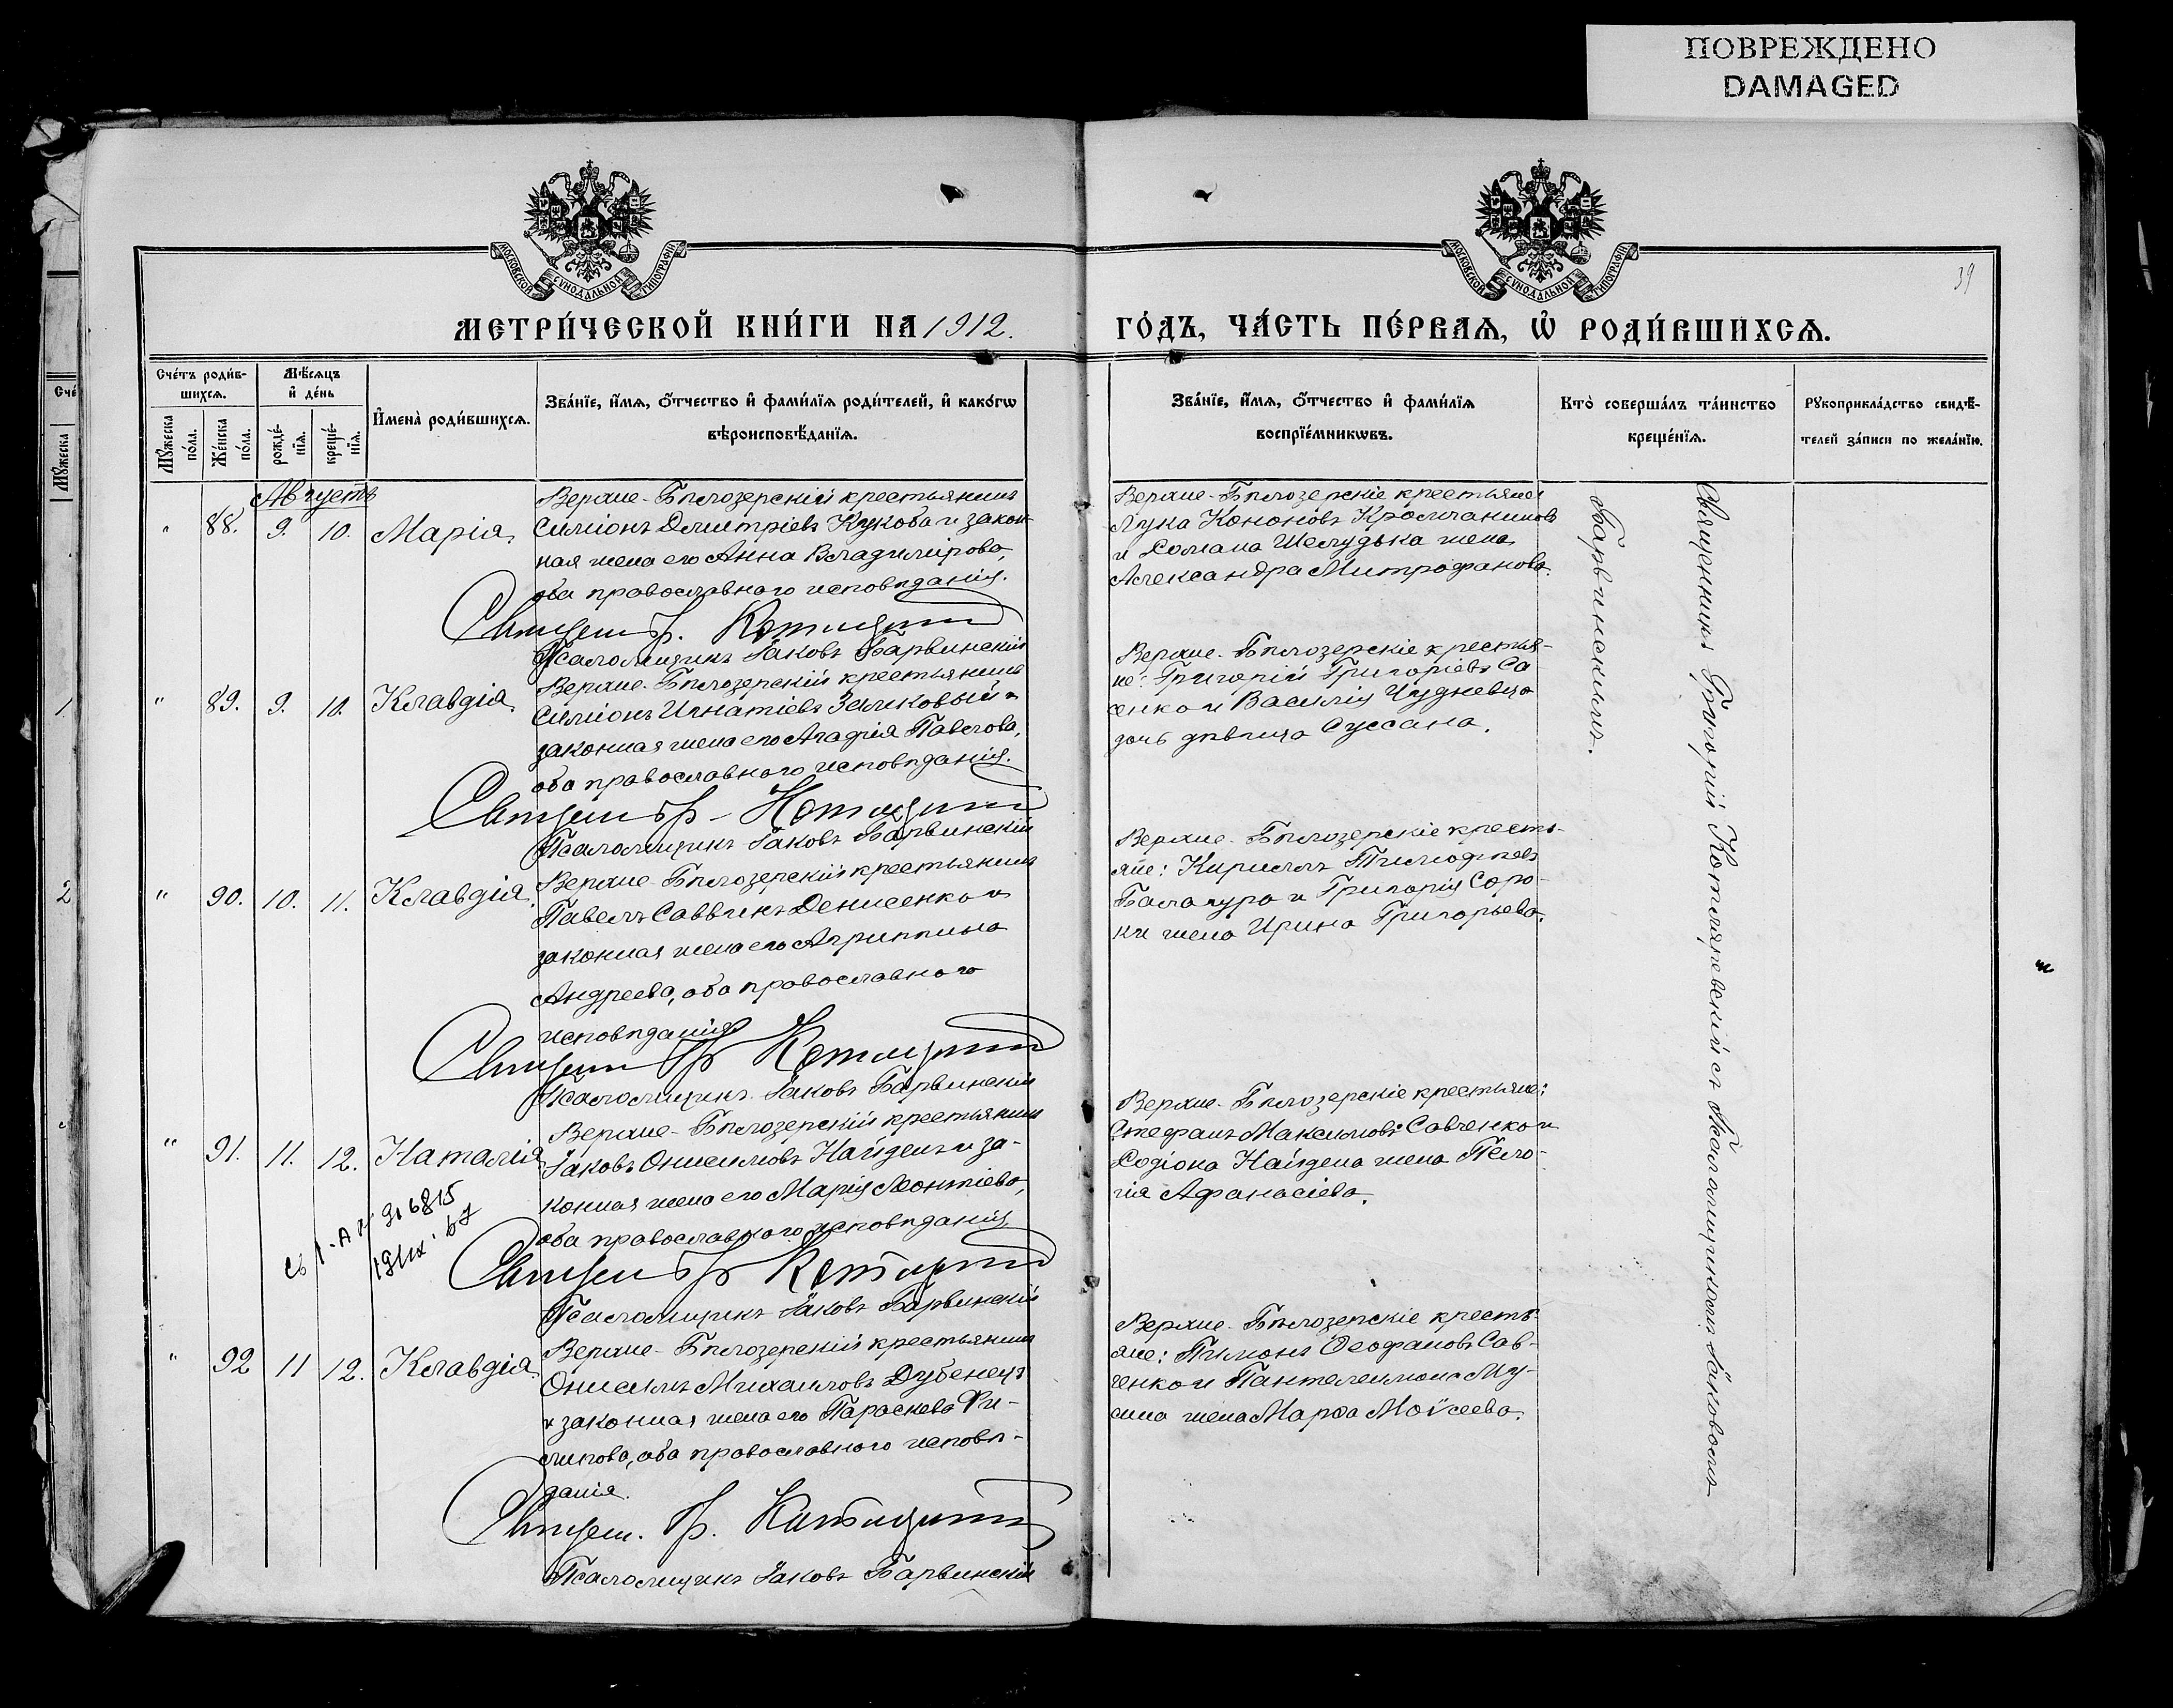 ПОВРЕЖДЕНО
DAMAGED
МОСКОВСКОЙ СѴНОДАЛЬНОЙ ТИПОГРАФІИ
МОСКОВСКОЙ СѴНОДАЛЬНОЙ ТИПОГРАФІИ
39
МЕТРИ́ЧЕСКОЙ КНИ́ГИ НА 1912.
ГО́ДЪ, ЧА́СТЬ ПЕ́РВАѦ, Ѡ҆ РОДИ́ВШИХСѦ.
Сче́тъ роди́в-
шихсѧ.
Мꙋ́жеска по́ла.
Же́нска по́ла.
Мѣ́сѧцъ
и҆ де́нь
рожде́-
нїѧ.
креще́-
нїѧ.
И҆мена̀ роди́вшихсѧ.
Зва́нїе, и҆́мѧ, о҆́тчество и҆ фами́лїѧ роди́телей, и҆ како́гѡ
вѣроисповѣ́данїѧ.
Зва́нїе, и҆́мѧ, о҆́тчество и҆ фами́лїѧ
воспрїе́мникѡвъ.
Кто̀ соверша́лъ та́инство
креще́нїѧ.
Рꙋкоприкла́дство свидѣ́-
телей за́писи по жела́нїю.
Августъ
" 88. 9. 10. Марія.
Верхне-Бѣлозерскій крестьянинъ
Симіонъ Димитріевъ Кукоба и закон-
ная жена его Анна Владимірова,
оба православнаго исповѣданія.
Священ. Гр.
Псаломщикъ Іаковъ Барвинскій
Верхне-Бѣлозерскіе крестьяне:
Лука Кононовъ
и Романа Шелудька жена
Александра Митрофанова.
" 89. 9. 10. Клавдія.
Верхне-Бѣлозерскій крестьянинъ
Симіонъ Игнатіевъ Замковый и
законная жена его Агафія Павлова,
оба православнаго исповѣданія.
Священ. Гр.
Псаломщикъ Іаковъ Барвинскій
Верхне-Бѣлозерскіе крестья-
не: Григорій Григоріевъ Са
енко и Василія Чудневца
дочь дѣвица Суссана.
" 90. 10. 11. Клавдія.
Верхне-Бѣлозерскій крестьянинъ
Павелъ Саввинъ Денисенко и
законная жена его Агриппина
Андреева, оба православнаго
исповѣданія
Священ. Гр.
Псаломщикъ Іаковъ Барвинскій
Верхне-Бѣлозерскіе кресть-
яне: Кириллъ Тимофѣевъ
Балагура и Григорія Соро-
ки жена Ирина Григорьева.
" 91. 11. 12. Наталія
Верхне-Бѣлозерскій крестьянинъ
Іаковъ Онисимовъ Найденъ и за-
конная жена его Марія Леонтіева,
оба православнаго исповѣданія
Священ. Гр.
Псаломщикъ Іаковъ Барвинскій
Верхне-Бѣлозерскіе крестьяне:
Стефанъ Максимовъ Савченко и
Родіона Найдена жена Пела-
гія Афанасіева.
" 92 11 12. Клавдія.
Верхне-Бѣлозерскій крестьянинъ
Онисимъ Михаиловъ Дубенецъ
и законная жена его Параскева Фи-
липова, оба православнаго исповѣ-
данія.
Священ. Гр.
Псаломщикъ Іаковъ Барвинскій
Верхне-Бѣлозерскіе кресть-
яне: Пимонъ Ѳеофановъ Сав-
ченко и Пантелеимона Му-
сина жена Марѳа Моѵсеева.
Священникъ Григорій Котляревскій съ Псаломщикомъ Іаковомъ
Барвинскимъ.